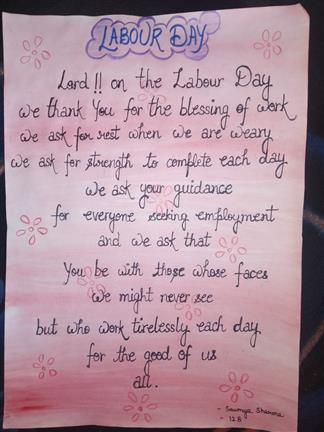 LABOUR DAY
Lord!! on the Labour Day
we thank You for the blessing of work
we ask for rest when we are weary
we ask for strength to complete each day
we ask your guidance
for everyone seeking employment
and we ask that
You be with those whose faces
we might never see
but who work tirelessly each day
for the good of us
all.
- Saumya Sharma
- 12 B